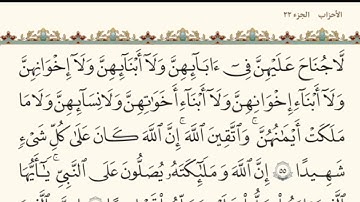 الأحزاب الجزء ٢٢
لَّا جُنَاحَ عَلَيْهِنَّ فِىٓ ءَابَآئِهِنَّ وَلَآ أَبْنَآئِهِنَّ وَلَآ إِخْوَٰنِهِنَّ
وَلَآ أَبْنَآءِ إِخْوَٰنِهِنَّ وَلَآ أَبْنَآءِ أَخَوَٰتِهِنَّ وَلَا نِسَآئِهِنَّ وَلَا مَا
مَلَكَتْ أَيْمَٰنُهُنَّ ۗ وَٱتَّقِينَ ٱللَّهَ ۚ إِنَّ ٱللَّهَ كَانَ عَلَىٰ كُلِّ شَىْءٍ
شَهِيدًا ٥٥ إِنَّ ٱللَّهَ وَمَلَٰٓئِكَتَهُۥ يُصَلُّونَ عَلَى ٱلنَّبِىِّ ۚ يَٰٓأَيُّهَا